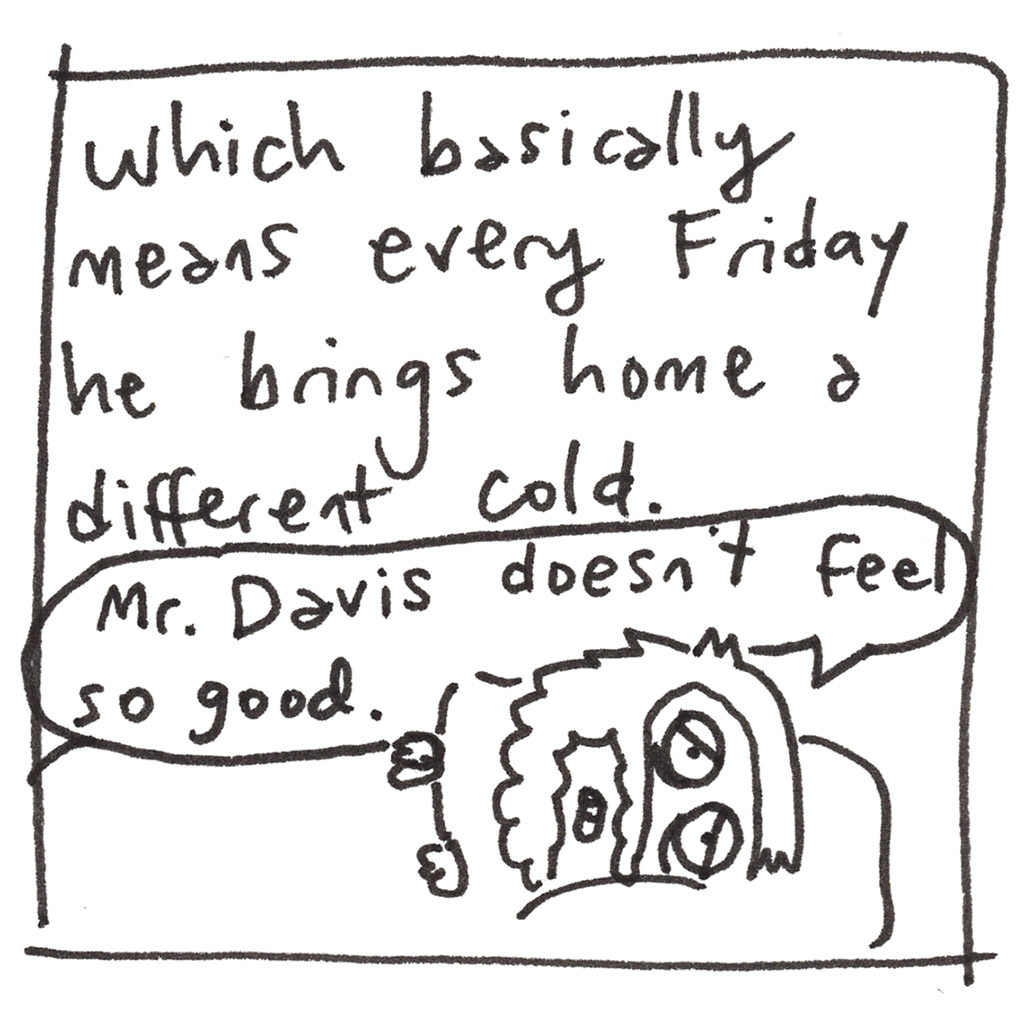 which basically
means every Friday
he brings home a
different cold.
Mr. Davis doesn't feel
so good.